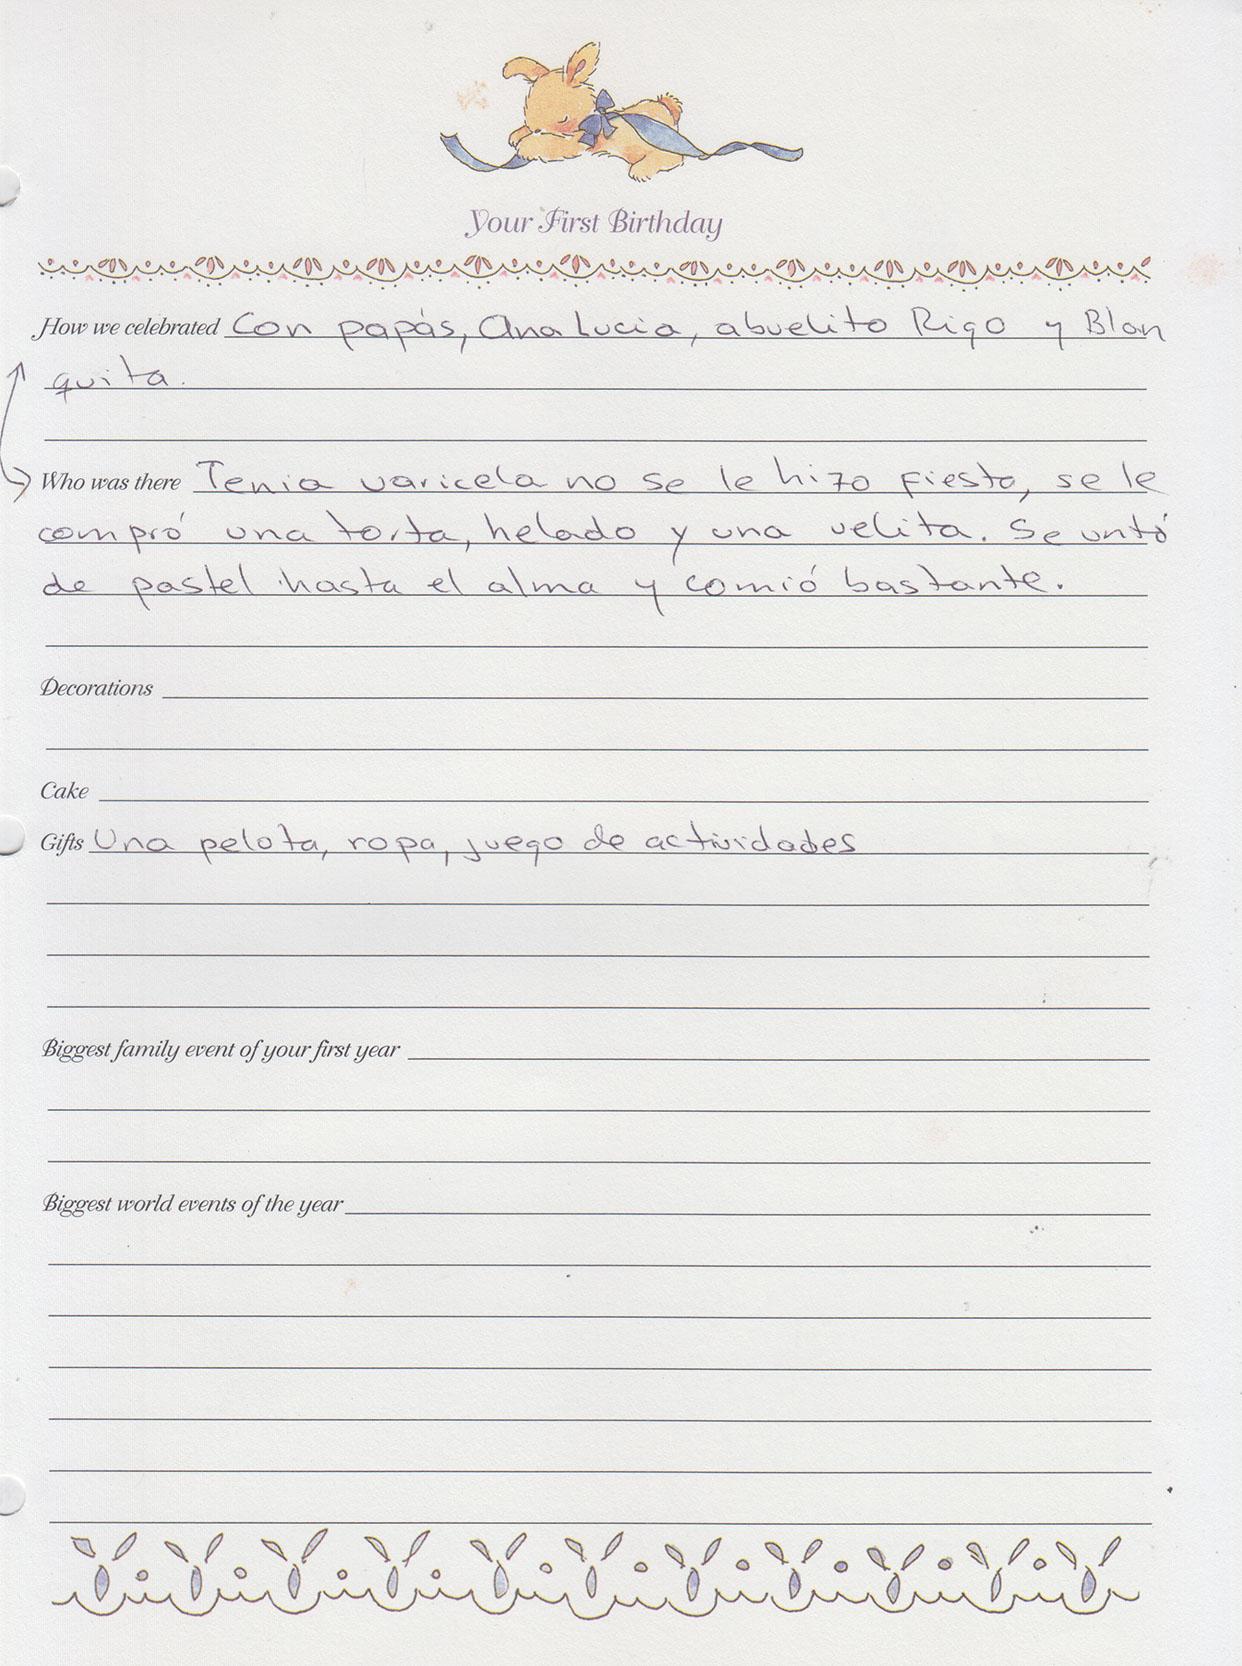 Your First Birthday
How we celebrated Con papás, Ana Lucia, abuelito Rigo y Blan
quita.
Who was there Tenia varicela no se le hizo fiesta, se le
compró una torta, helado y una velita. Se untó
de pastel hasta el alma y comió bastante.
Decorations
Cake
Gifts Una pelota, ropa, juego de actividades
Biggest family event of your first year
Biggest world events of the year